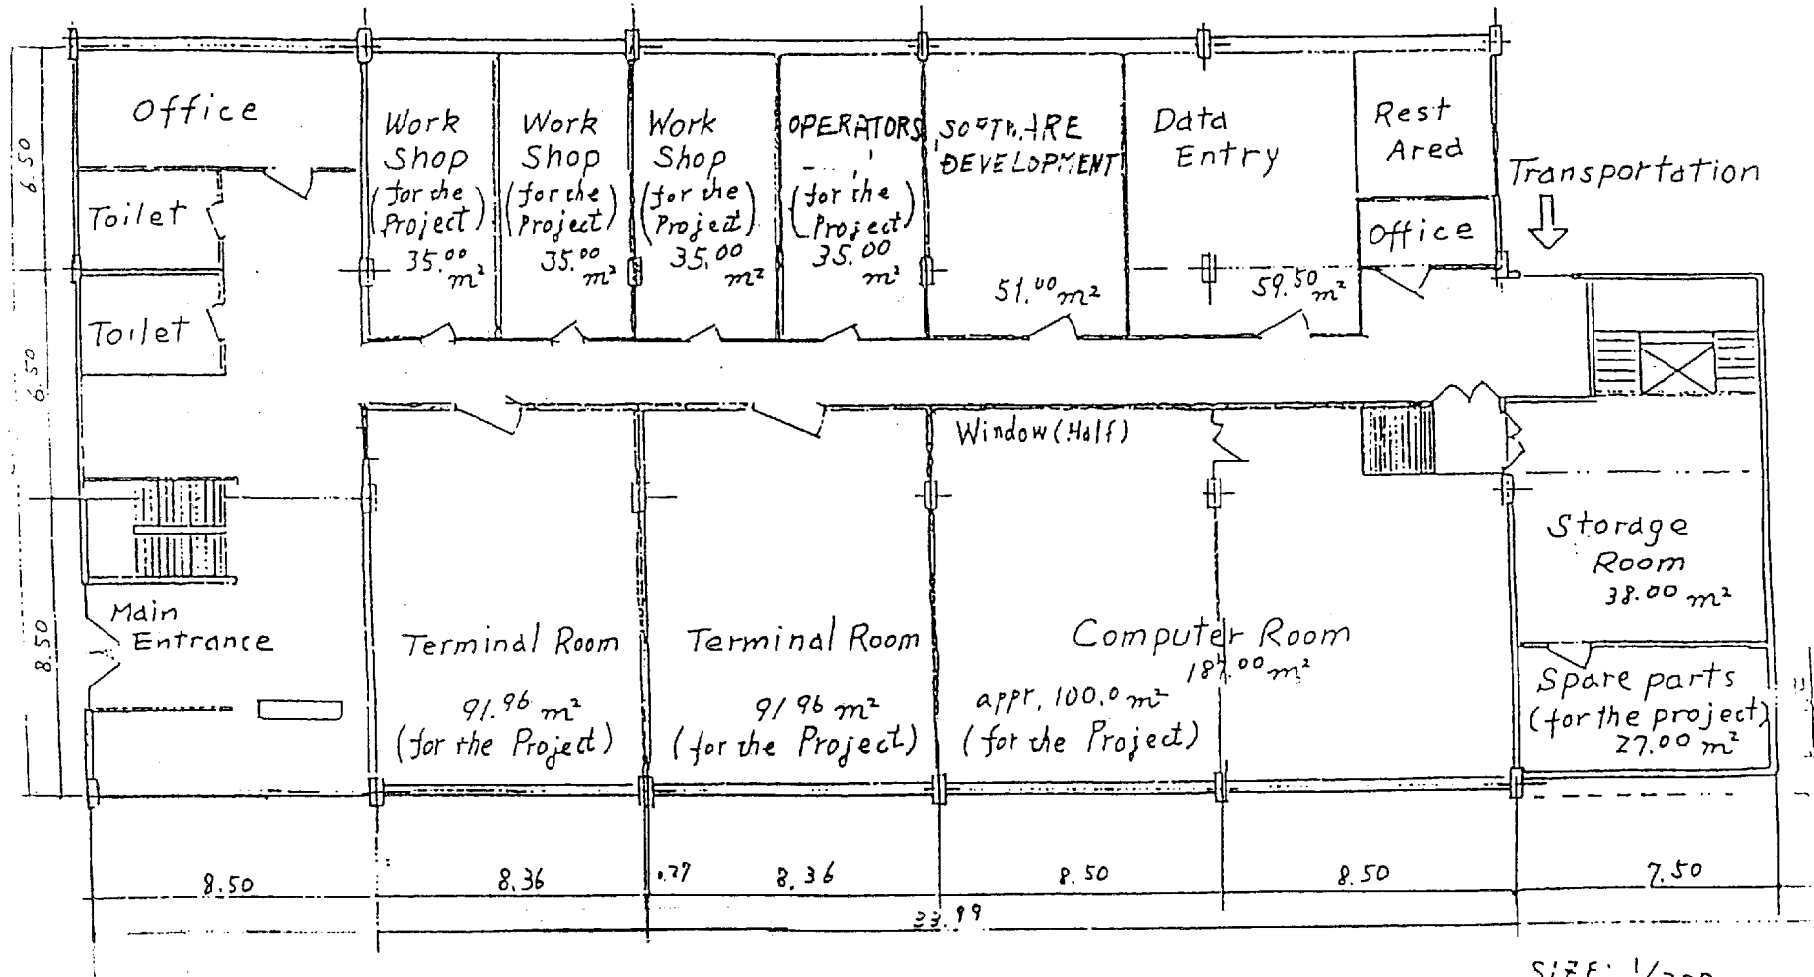 Office
Work
Shop
(for the
Project)
35.00
m²
Work
Shop
(for the
Project)
35.00
m²
Work
Shop
(for the
Project)
35.00
m²
OPERATORS
(for the
Project)
35.00
m²
DEVELOPMENT
51.00 m²
Data
Entry
59.50 m²
Rest
Ared
Office
Transportation
Toilet
Toilet
6.50
6.50
8.50
Window (Half)
Main
Entrance
Terminal Room
91.96 m²
(for the Project)
Terminal Room
91 96 m²
(for the Project)
Computer Room
187.00 m²
appr. 100.0 m²
(for the Project)
Storage
Room
38.00 m²
Spare parts
(for the project)
27.00 m²
8.50
8.36
.27
8.36
8.50
8.50
7.50
33.99
SIZE: 1/200